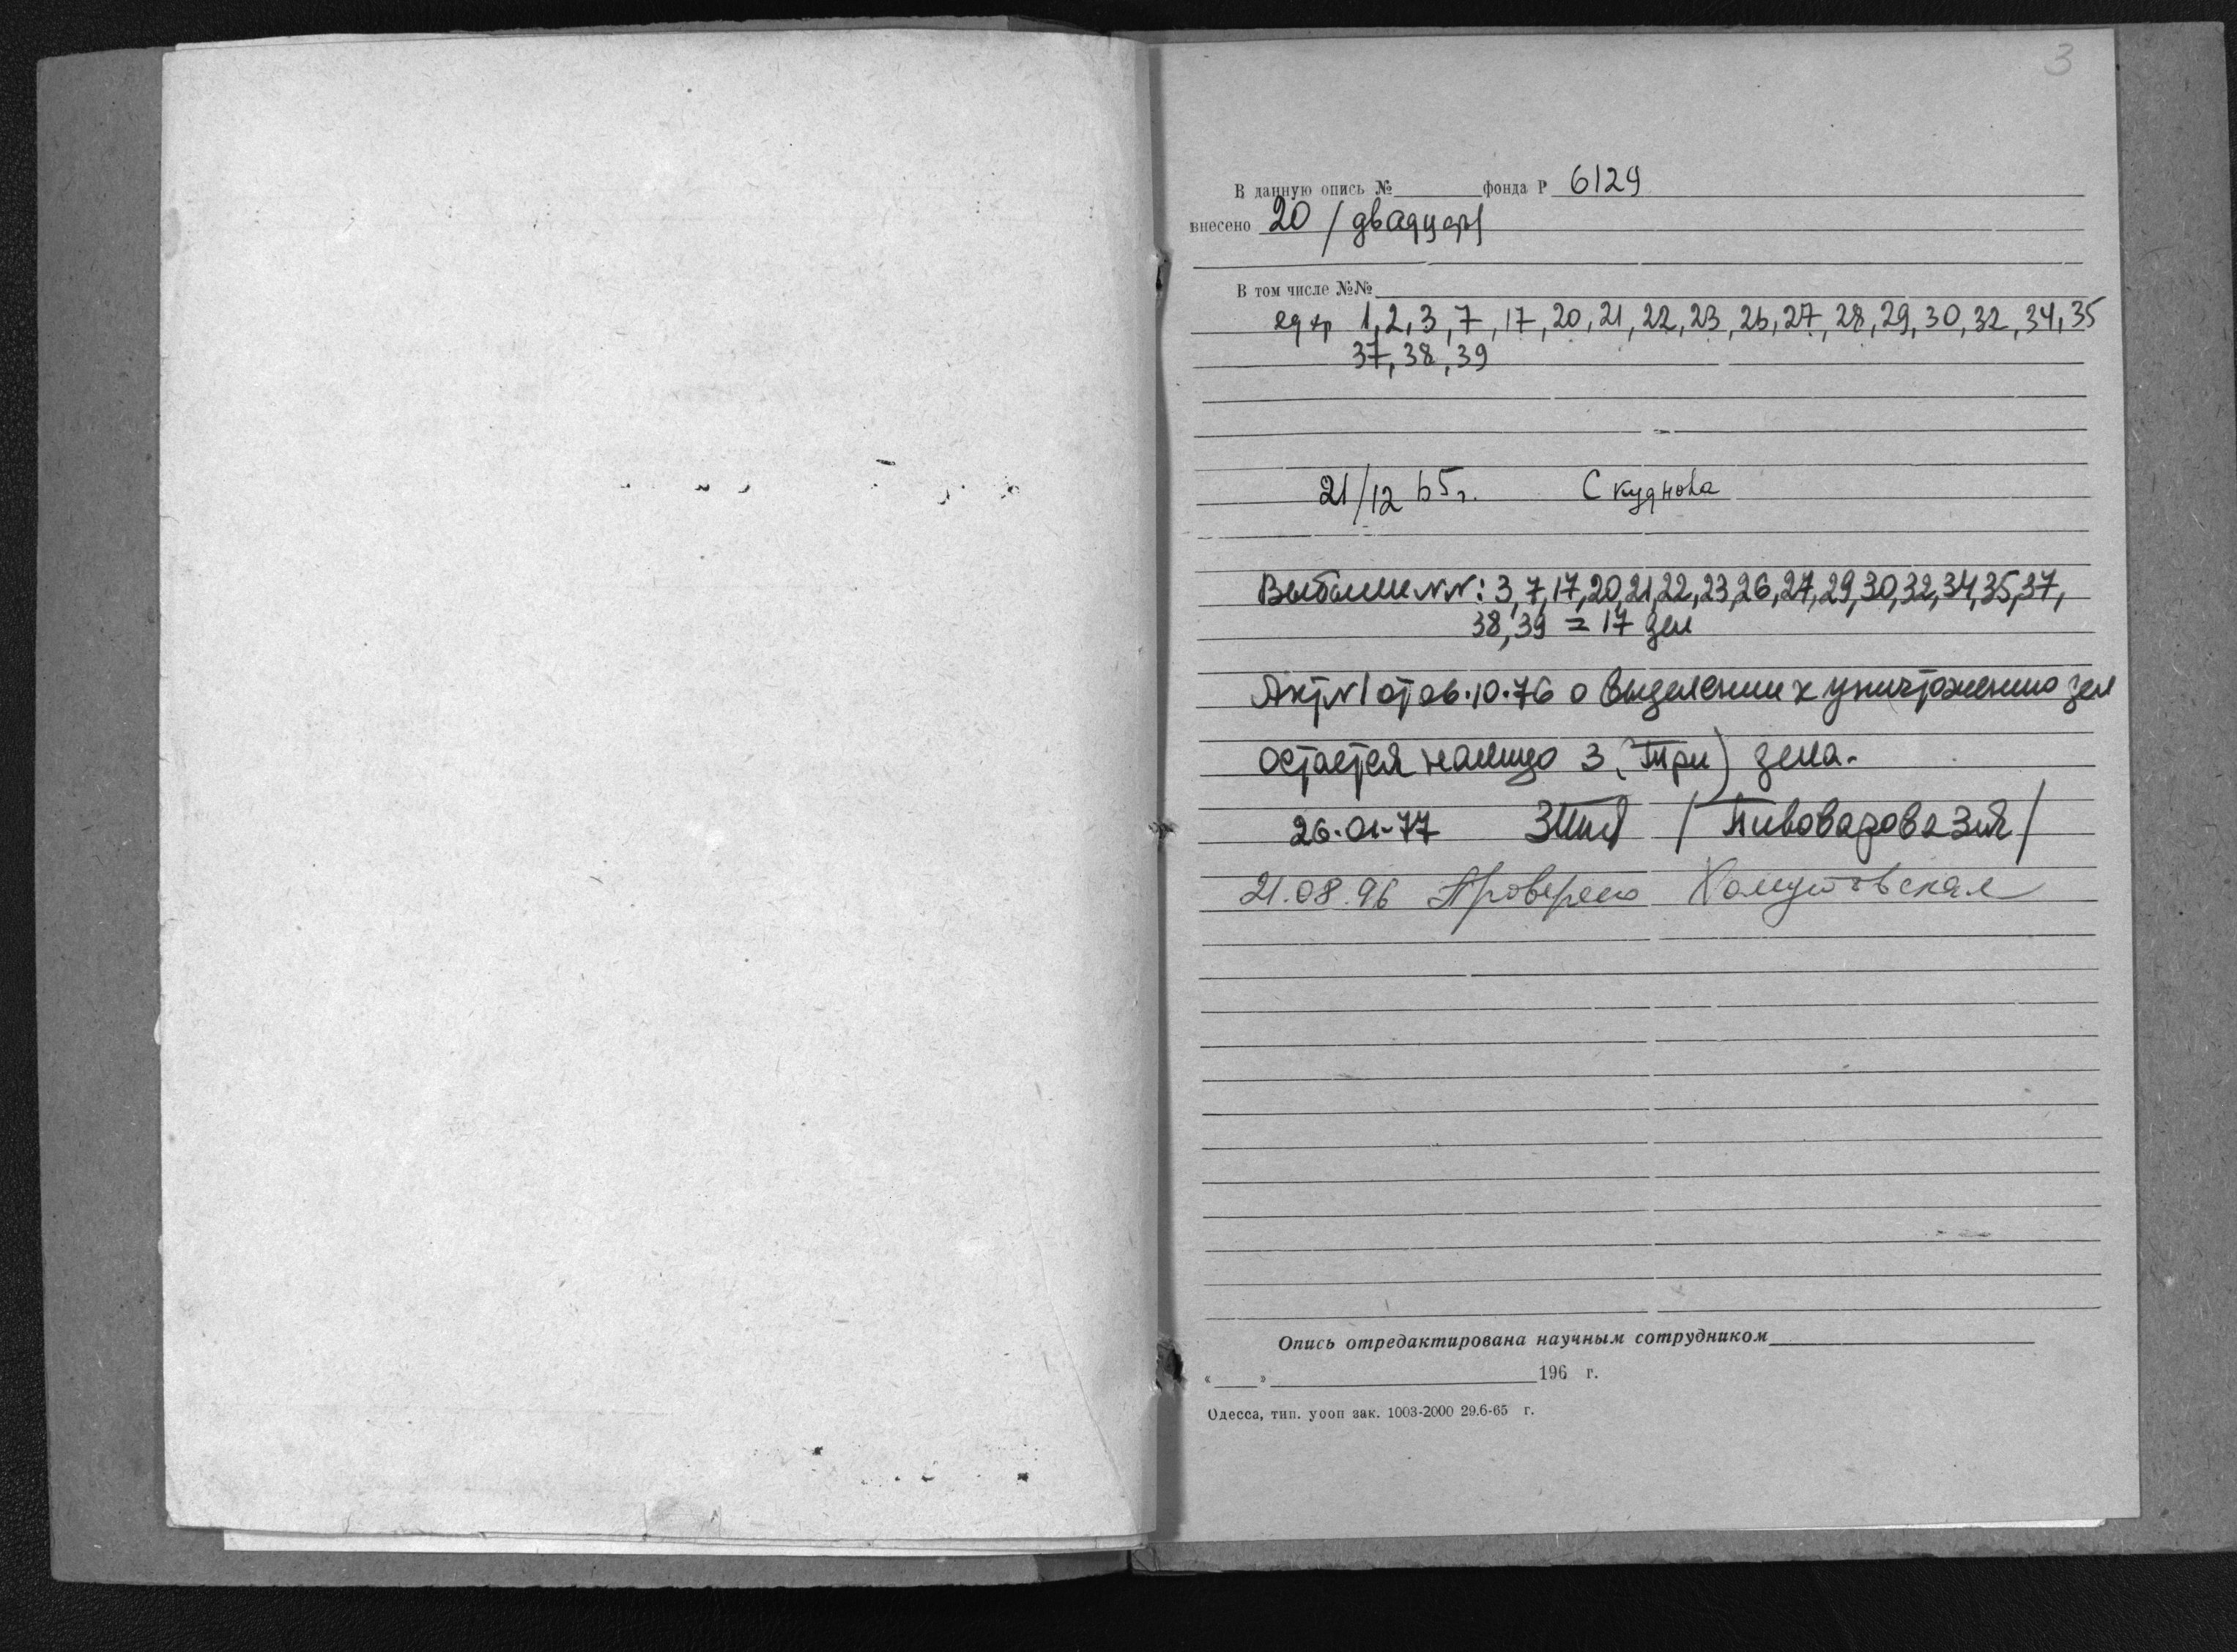 3
В данную опись №______ фонда Р 6129
внесено 20 / двадцать /
В том числе №№
ед хр 1, 2, 3, 7, 17, 20, 21, 22, 23, 26, 27, 28, 29, 30, 32, 34, 35
37, 38, 39
21/12 65 г. Скуднова
Выбыли NN: 3, 7, 17, 20, 21, 22, 23, 26, 27, 29, 30, 32, 34, 35, 37,
38, 39 = 17 дел
Акт N1 от 06.10.76 о выделении к уничтожению дел
остается налицо 3 (Три) дела.
26.01-77 / Пивоварова /
21.08.96 Проверено Хомутовская
Опись отредактирована научным сотрудником
«____» 196 г.
Одесса, тип. уооп зак. 1003-2000 29.6-65 г.